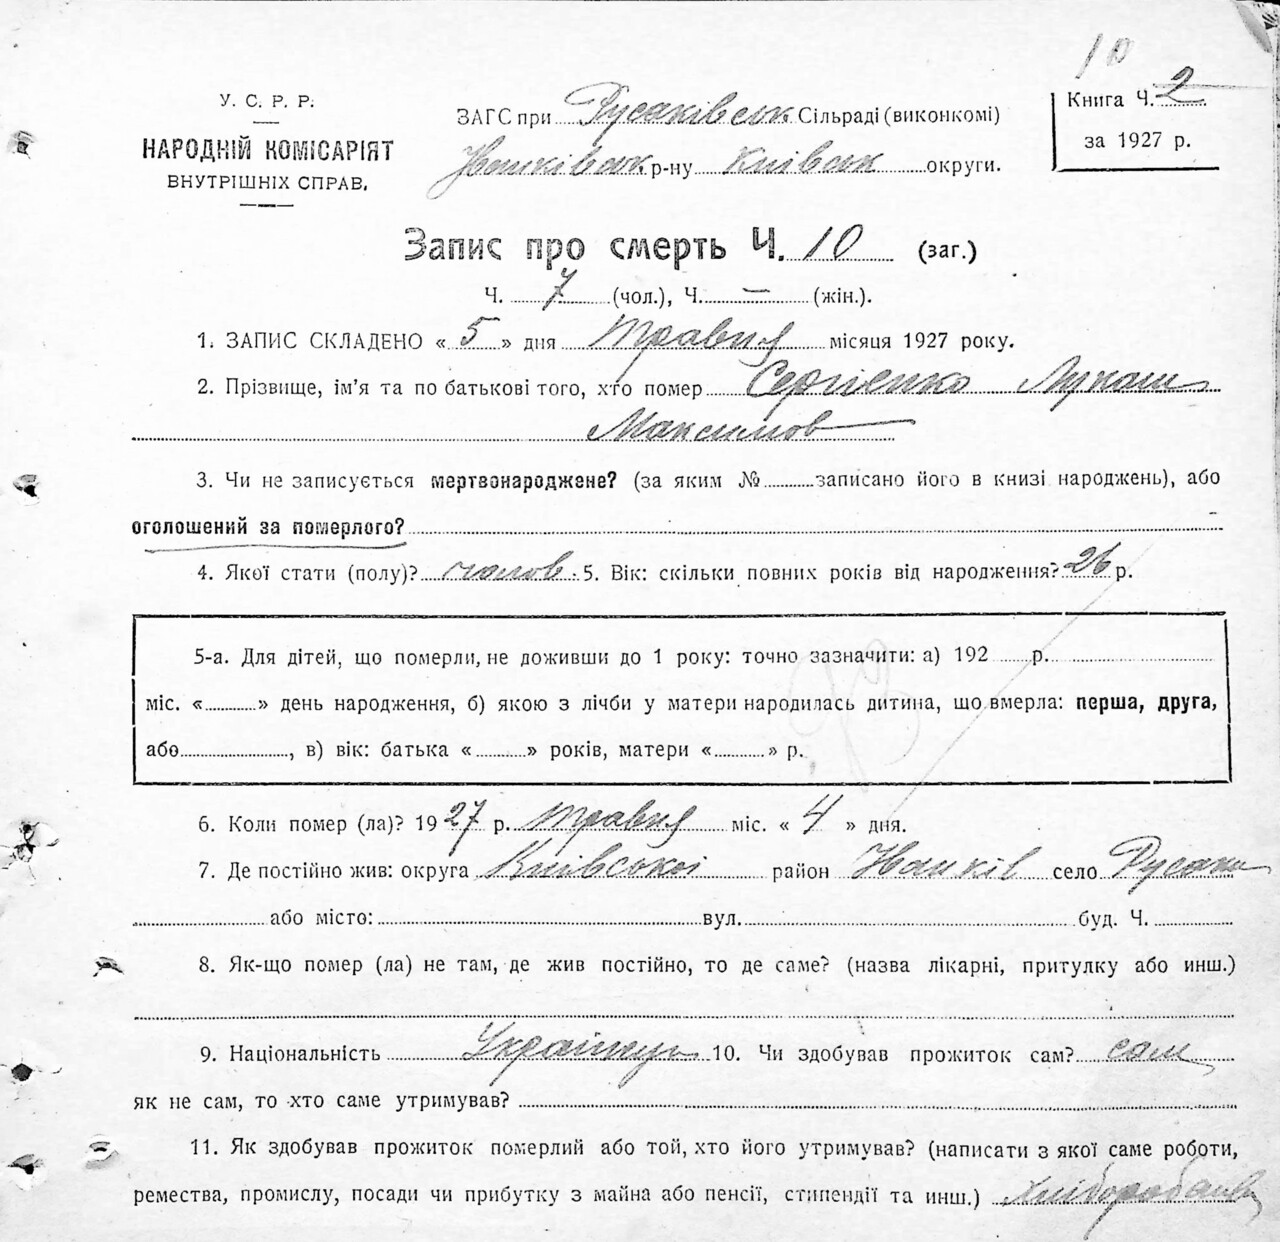 10
У. С. Р. Р.
НАРОДНІЙ КОМІСАРІЯТ
ВНУТРІШНІХ СПРАВ.
ЗАГС при Русаківськ Сільраді (виконкомі)
Іванківськ р-ну Київськ округи.
Книга Ч. 2
за 1927 р.
Запис про смерть Ч. 10 (заг.)
Ч. 7 (чол.), Ч. — (жін.).
1. ЗАПИС СКЛАДЕНО « 5 » дня Травня місяця 1927 року.
2. Прізвище, ім'я та по батькові того, хто помер Сергіенко Лукаш
Максимов
3. Чи не записується мертвонароджене? (за яким № записано його в книзі народжень), або
оголошений за померлого?
4. Якої стати (полу)? чолов. 5. Вік: скільки повних років від народження? 26 р.
5-а. Для дітей, що померли, не доживши до 1 року: точно зазначити: а) 192 р.
міс. « » день народження, б) якою з лічби у матери народилась дитина, що вмерла: перша, друга,
або , в) вік: батька « » років, матери « » р.
6. Коли помер (ла)? 1927 р. Травня міс. « 4 » дня.
7. Де постійно жив: округа Київської район Іванків село Русаки
або місто: вул. буд. Ч.
8. Як-що помер (ла) не там, де жив постійно, то де саме? (назва лікарні, притулку або инш.)
9. Національність 10. Чи здобував прожиток сам? сам
як не сам, то хто саме утримував?
11. Як здобував прожиток померлий або той, хто його утримував? (написати з якої саме роботи,
ремества, промислу, посади чи прибутку з майна або пенсії, стипендії та инш.)